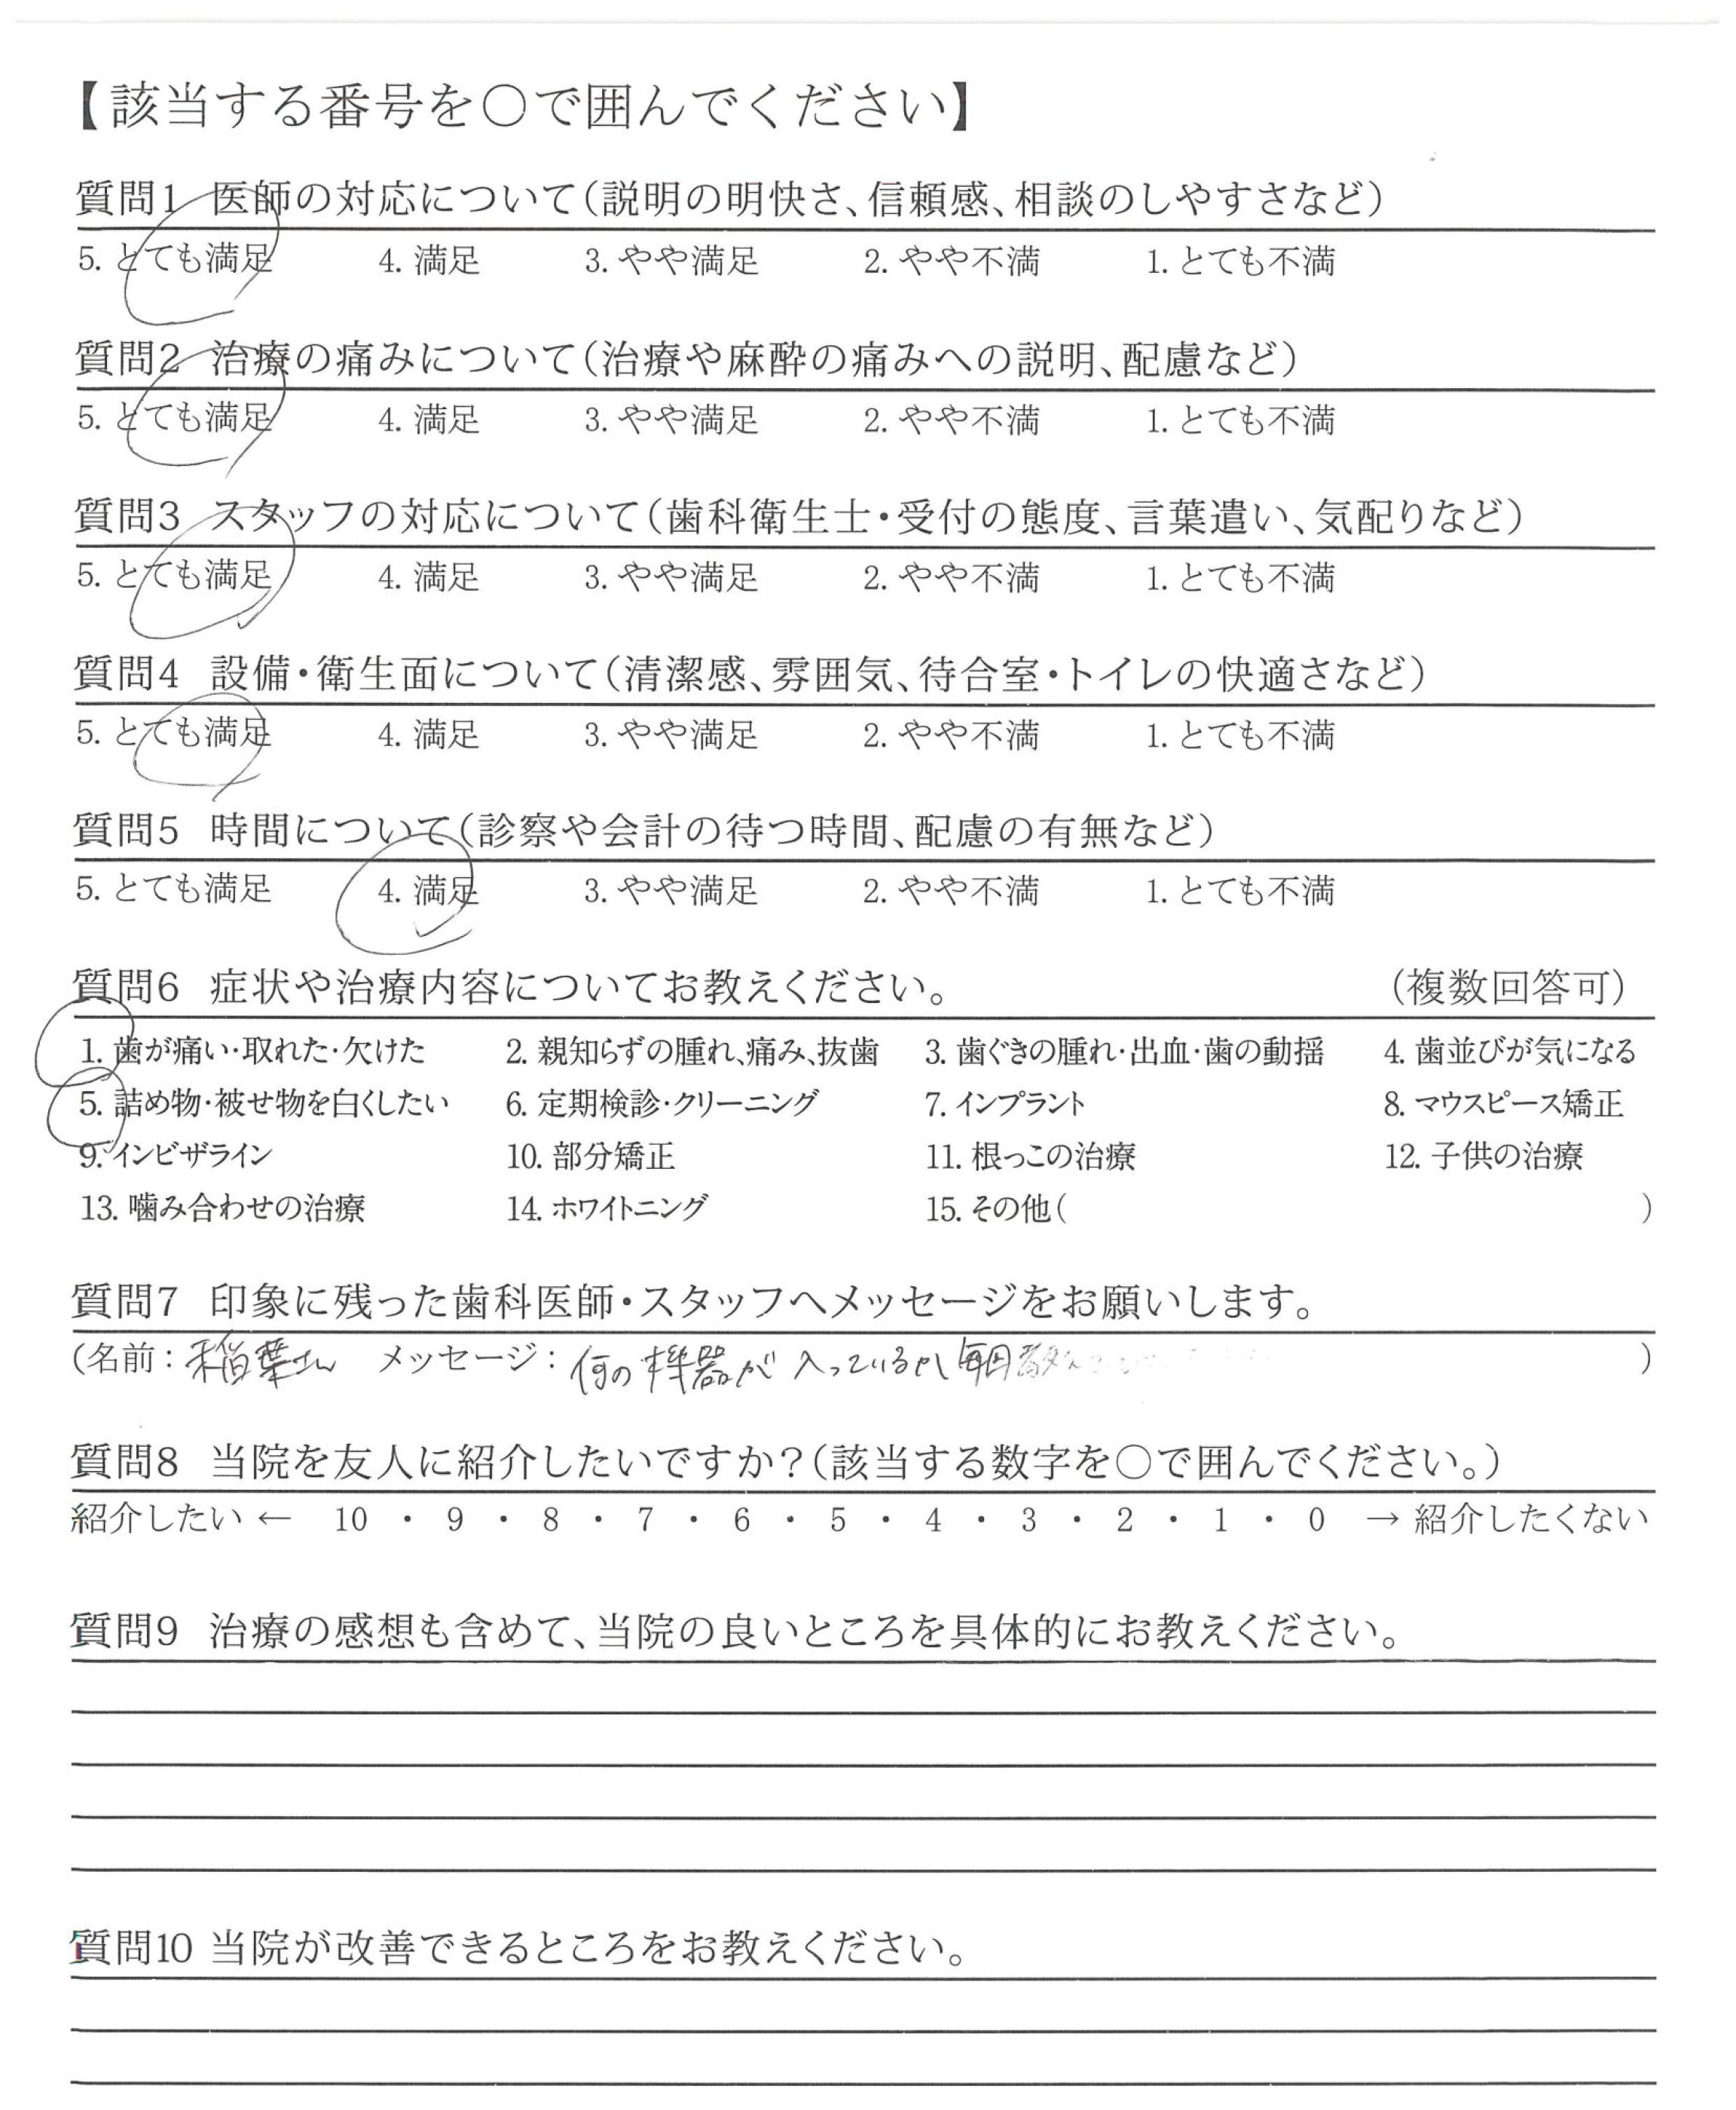 【該当する番号を○で囲んでください】
質問1 医師の対応について(説明の明快さ、信頼感、相談のしやすさなど)
5. とても満足 4. 満足 3. やや満足 2. やや不満 1. とても不満
質問2 治療の痛みについて(治療や麻酔の痛みへの説明、配慮など)
5. とても満足 4. 満足 3. やや満足 2. やや不満 1. とても不満
質問3 スタッフの対応について(歯科衛生士・受付の態度、言葉遣い、気配りなど)
5. とても満足 4. 満足 3. やや満足 2. やや不満 1. とても不満
質問4 設備・衛生面について(清潔感、雰囲気、待合室・トイレの快適さなど)
5. とても満足 4. 満足 3. やや満足 2. やや不満 1. とても不満
質問5 時間について(診察や会計の待つ時間、配慮の有無など)
5. とても満足 4. 満足 3. やや満足 2. やや不満 1. とても不満
質問6 症状や治療内容についてお教えください。 (複数回答可)
1. 歯が痛い・取れた・欠けた 2. 親知らずの腫れ、痛み、抜歯 3. 歯ぐきの腫れ・出血・歯の動揺 4. 歯並びが気になる
5. 詰め物・被せ物を白くしたい 6. 定期検診・クリーニング 7. インプラント 8. マウスピース矯正
9. インビザライン 10. 部分矯正 11. 根っこの治療 12. 子供の治療
13. 噛み合わせの治療 14. ホワイトニング 15. その他( )
質問7 印象に残った歯科医師・スタッフへメッセージをお願いします。
(名前 : 稲葉さん メッセージ : 何の機器が入っているか毎回教えて )
質問8 当院を友人に紹介したいですか?(該当する数字を○で囲んでください。)
紹介したい ← 10 ・ 9 ・ 8 ・ 7 ・ 6 ・ 5 ・ 4 ・ 3 ・ 2 ・ 1 ・ 0 → 紹介したくない
質問9 治療の感想も含めて、当院の良いところを具体的にお教えください。
質問10 当院が改善できるところをお教えください。